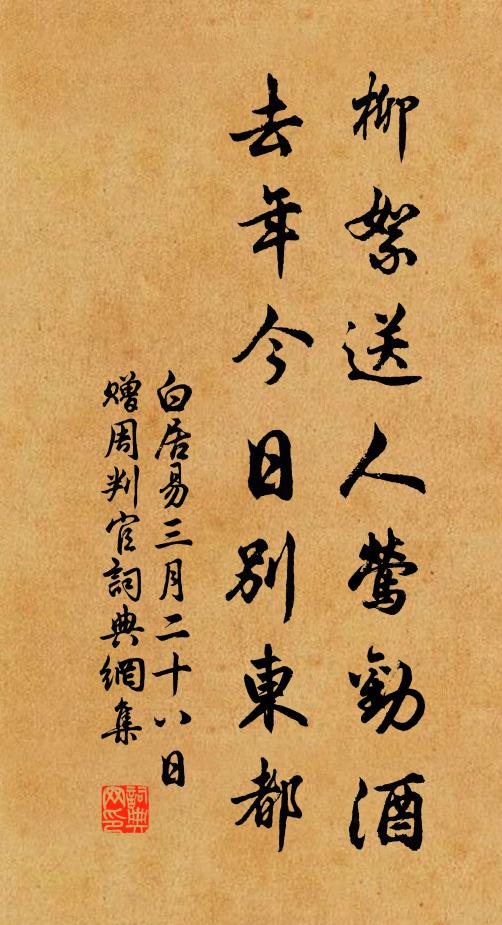 柳絮送人鶯勸酒
去年今日別東都
白居易三月二十八日
贈周判官詞典網集
詞典網印